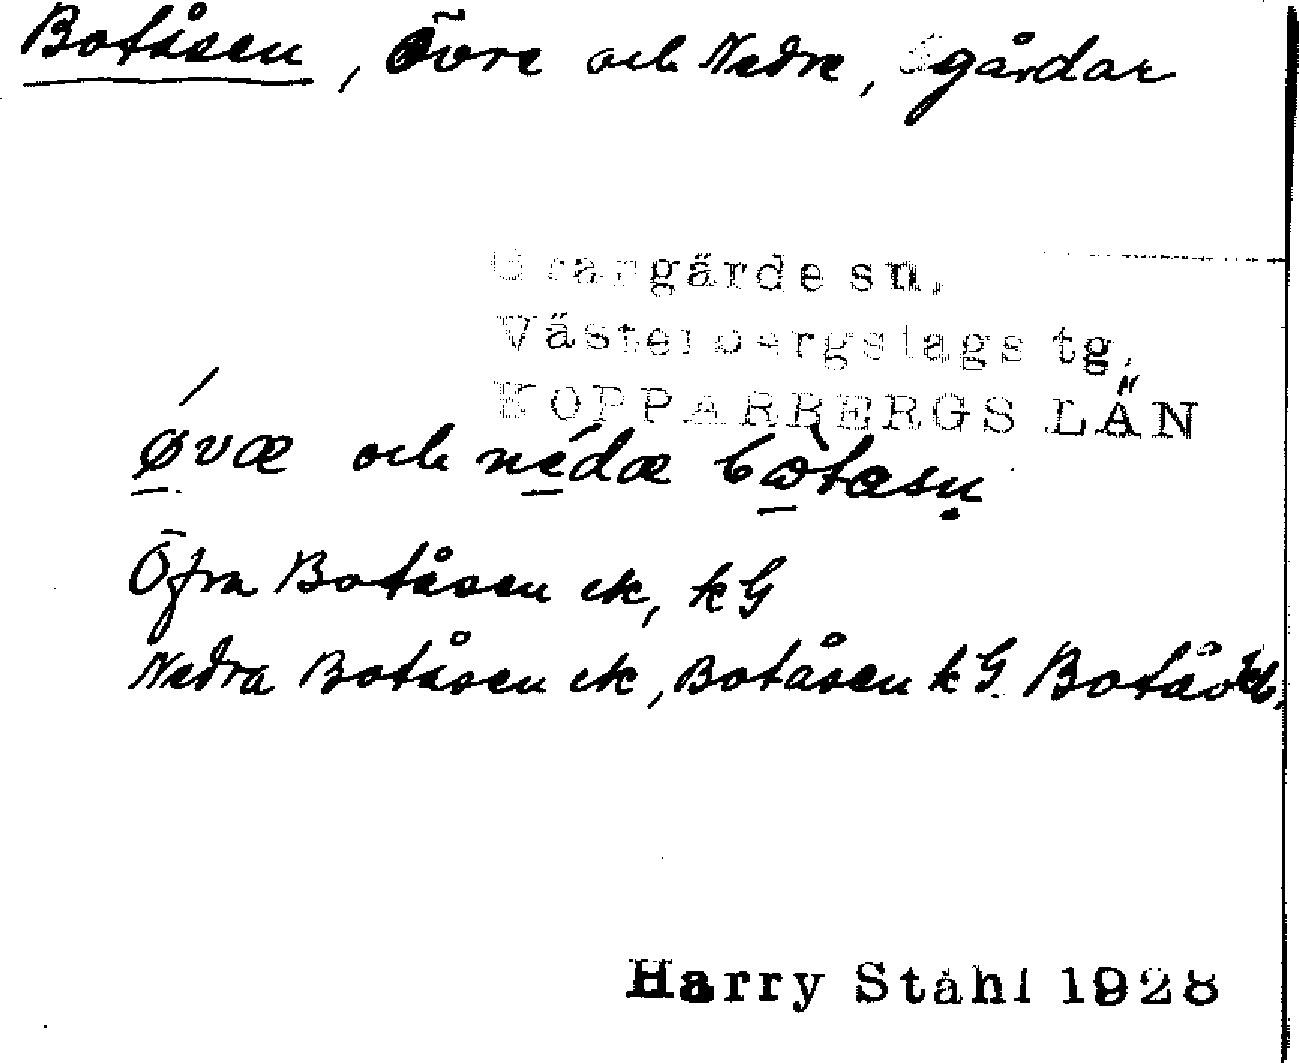 Botåsen, Övre och Nedre, gårdar
Grangärde sn.
Västerbergslags tg.
KOPPARBERGS LÄN
ǿvæ och nédæ bòtæsn̥
Öfra Botåsen ek, kG
Nedra Botåsen ek, Botåsen kG
Harry Ståhl 1928